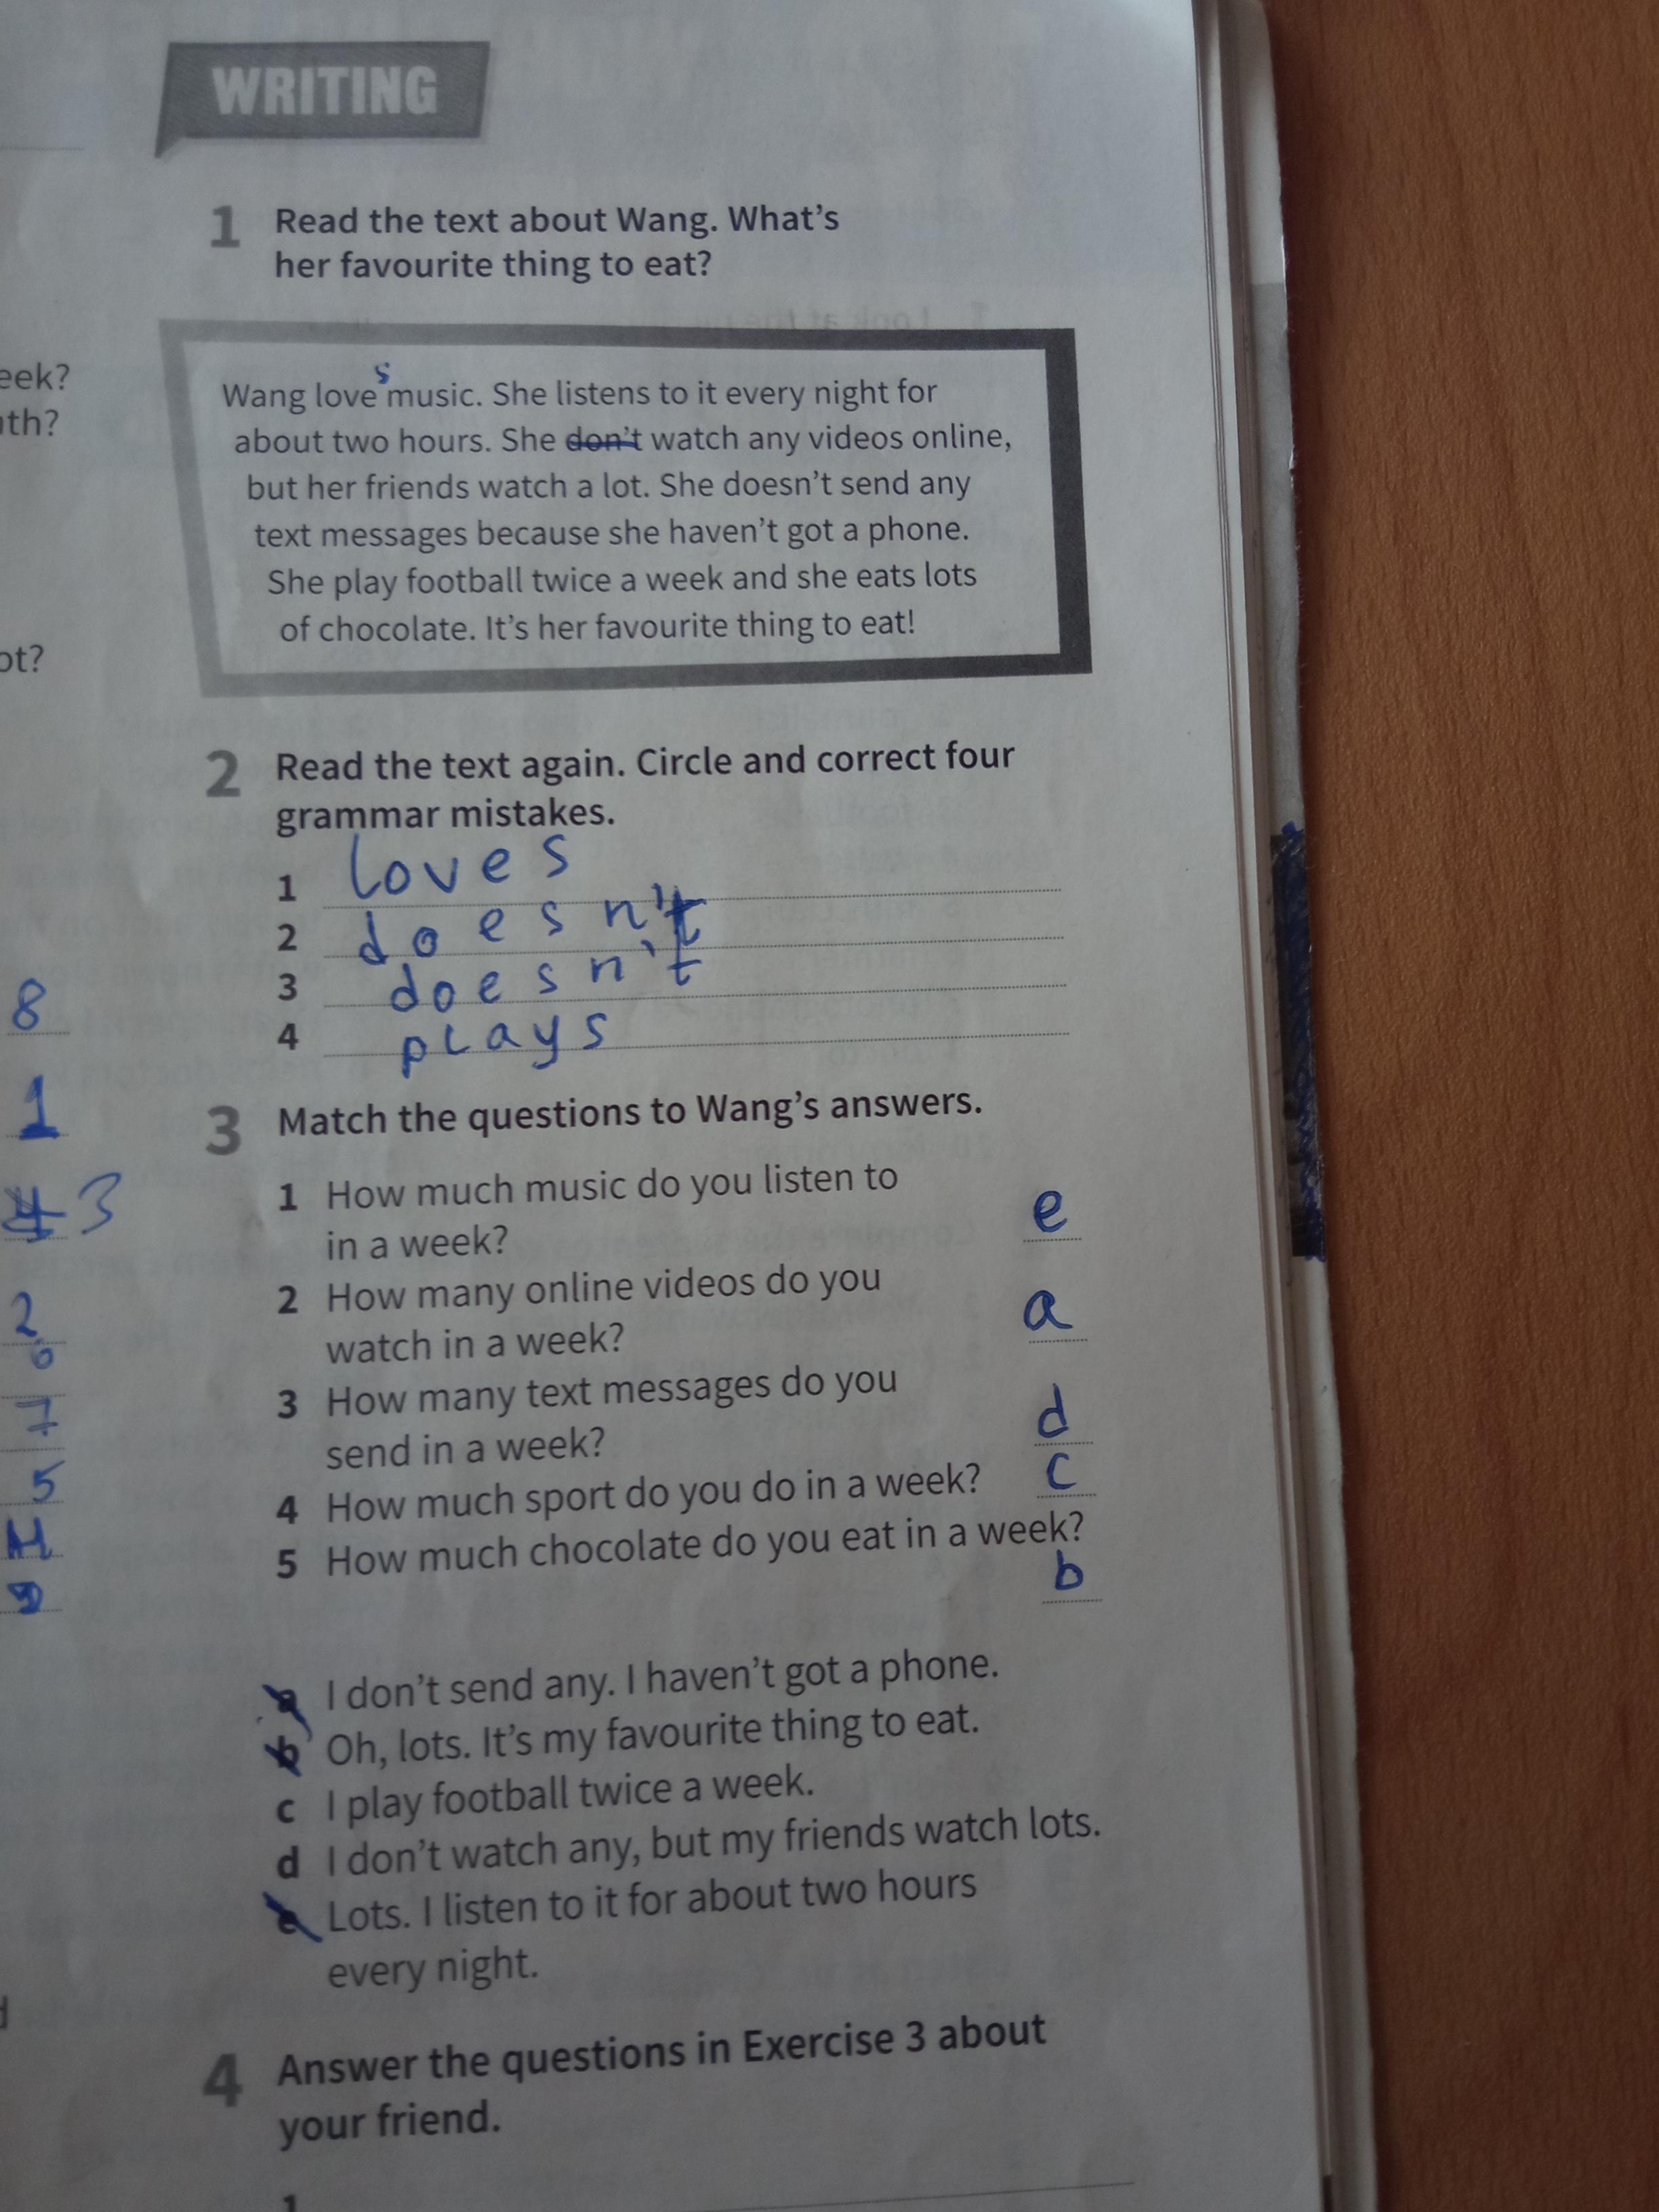 WRITING
1 Read the text about Wang. What's
her favourite thing to eat?
s
Wang love music. She listens to it every night for
about two hours. She don't watch any videos online,
but her friends watch a lot. She doesn't send any
text messages because she haven't got a phone.
She play football twice a week and she eats lots
of chocolate. It's her favourite thing to eat!
eek?
th?
ot?
2 Read the text again. Circle and correct four
grammar mistakes.
1 loves
2 doesn't
3 doesn't
4 plays
8
1
3
2
7
5
3 Match the questions to Wang's answers.
1 How much music do you listen to
in a week? e
2 How many online videos do you
watch in a week? a
3 How many text messages do you
send in a week? d
4 How much sport do you do in a week? c
5 How much chocolate do you eat in a week?
b
a I don't send any. I haven't got a phone.
b Oh, lots. It's my favourite thing to eat.
c I play football twice a week.
d I don't watch any, but my friends watch lots.
e Lots. I listen to it for about two hours
every night.
4 Answer the questions in Exercise 3 about
your friend.
1